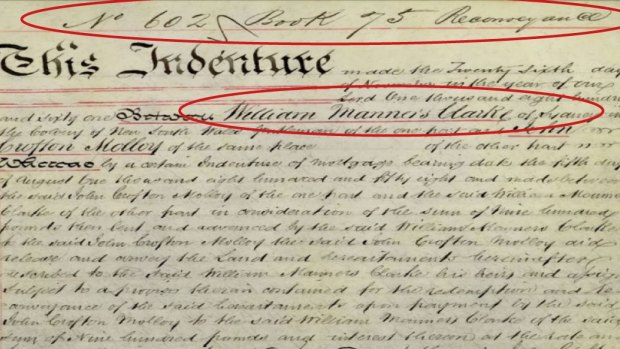 No 602 Book 75 Reconveyance
This Indenture made the Twenty Sixth day
of November in the year of our
Lord One thousand eight hundred
and sixty one Between William Manners Clarke of Sydney in
the Colony of New South Wales Gentleman of the one part and John
Crofton Molloy of the same place of the other part
Whereas by a certain Indenture of Mortgage bearing date the fifth day
of August One thousand eight hundred and fifty eight and made between
the said John Crofton Molloy of the one part and the said William Manners
Clarke of the other part in consideration of the sum of Nine hundred
pounds then lent and advanced by the said William Manners Clarke
to the said John Crofton Molloy the said John Crofton Molloy did
release and convey the Land and hereditaments hereinafter
described to the said William Manners Clarke his heirs and assigns
subject to a proviso therein contained for the redemption and re
conveyance of the said hereditaments upon payment by the said
John Crofton Molloy to the said William Manners Clarke of the said
sum of Nine hundred pounds and interest thereon at the rate and